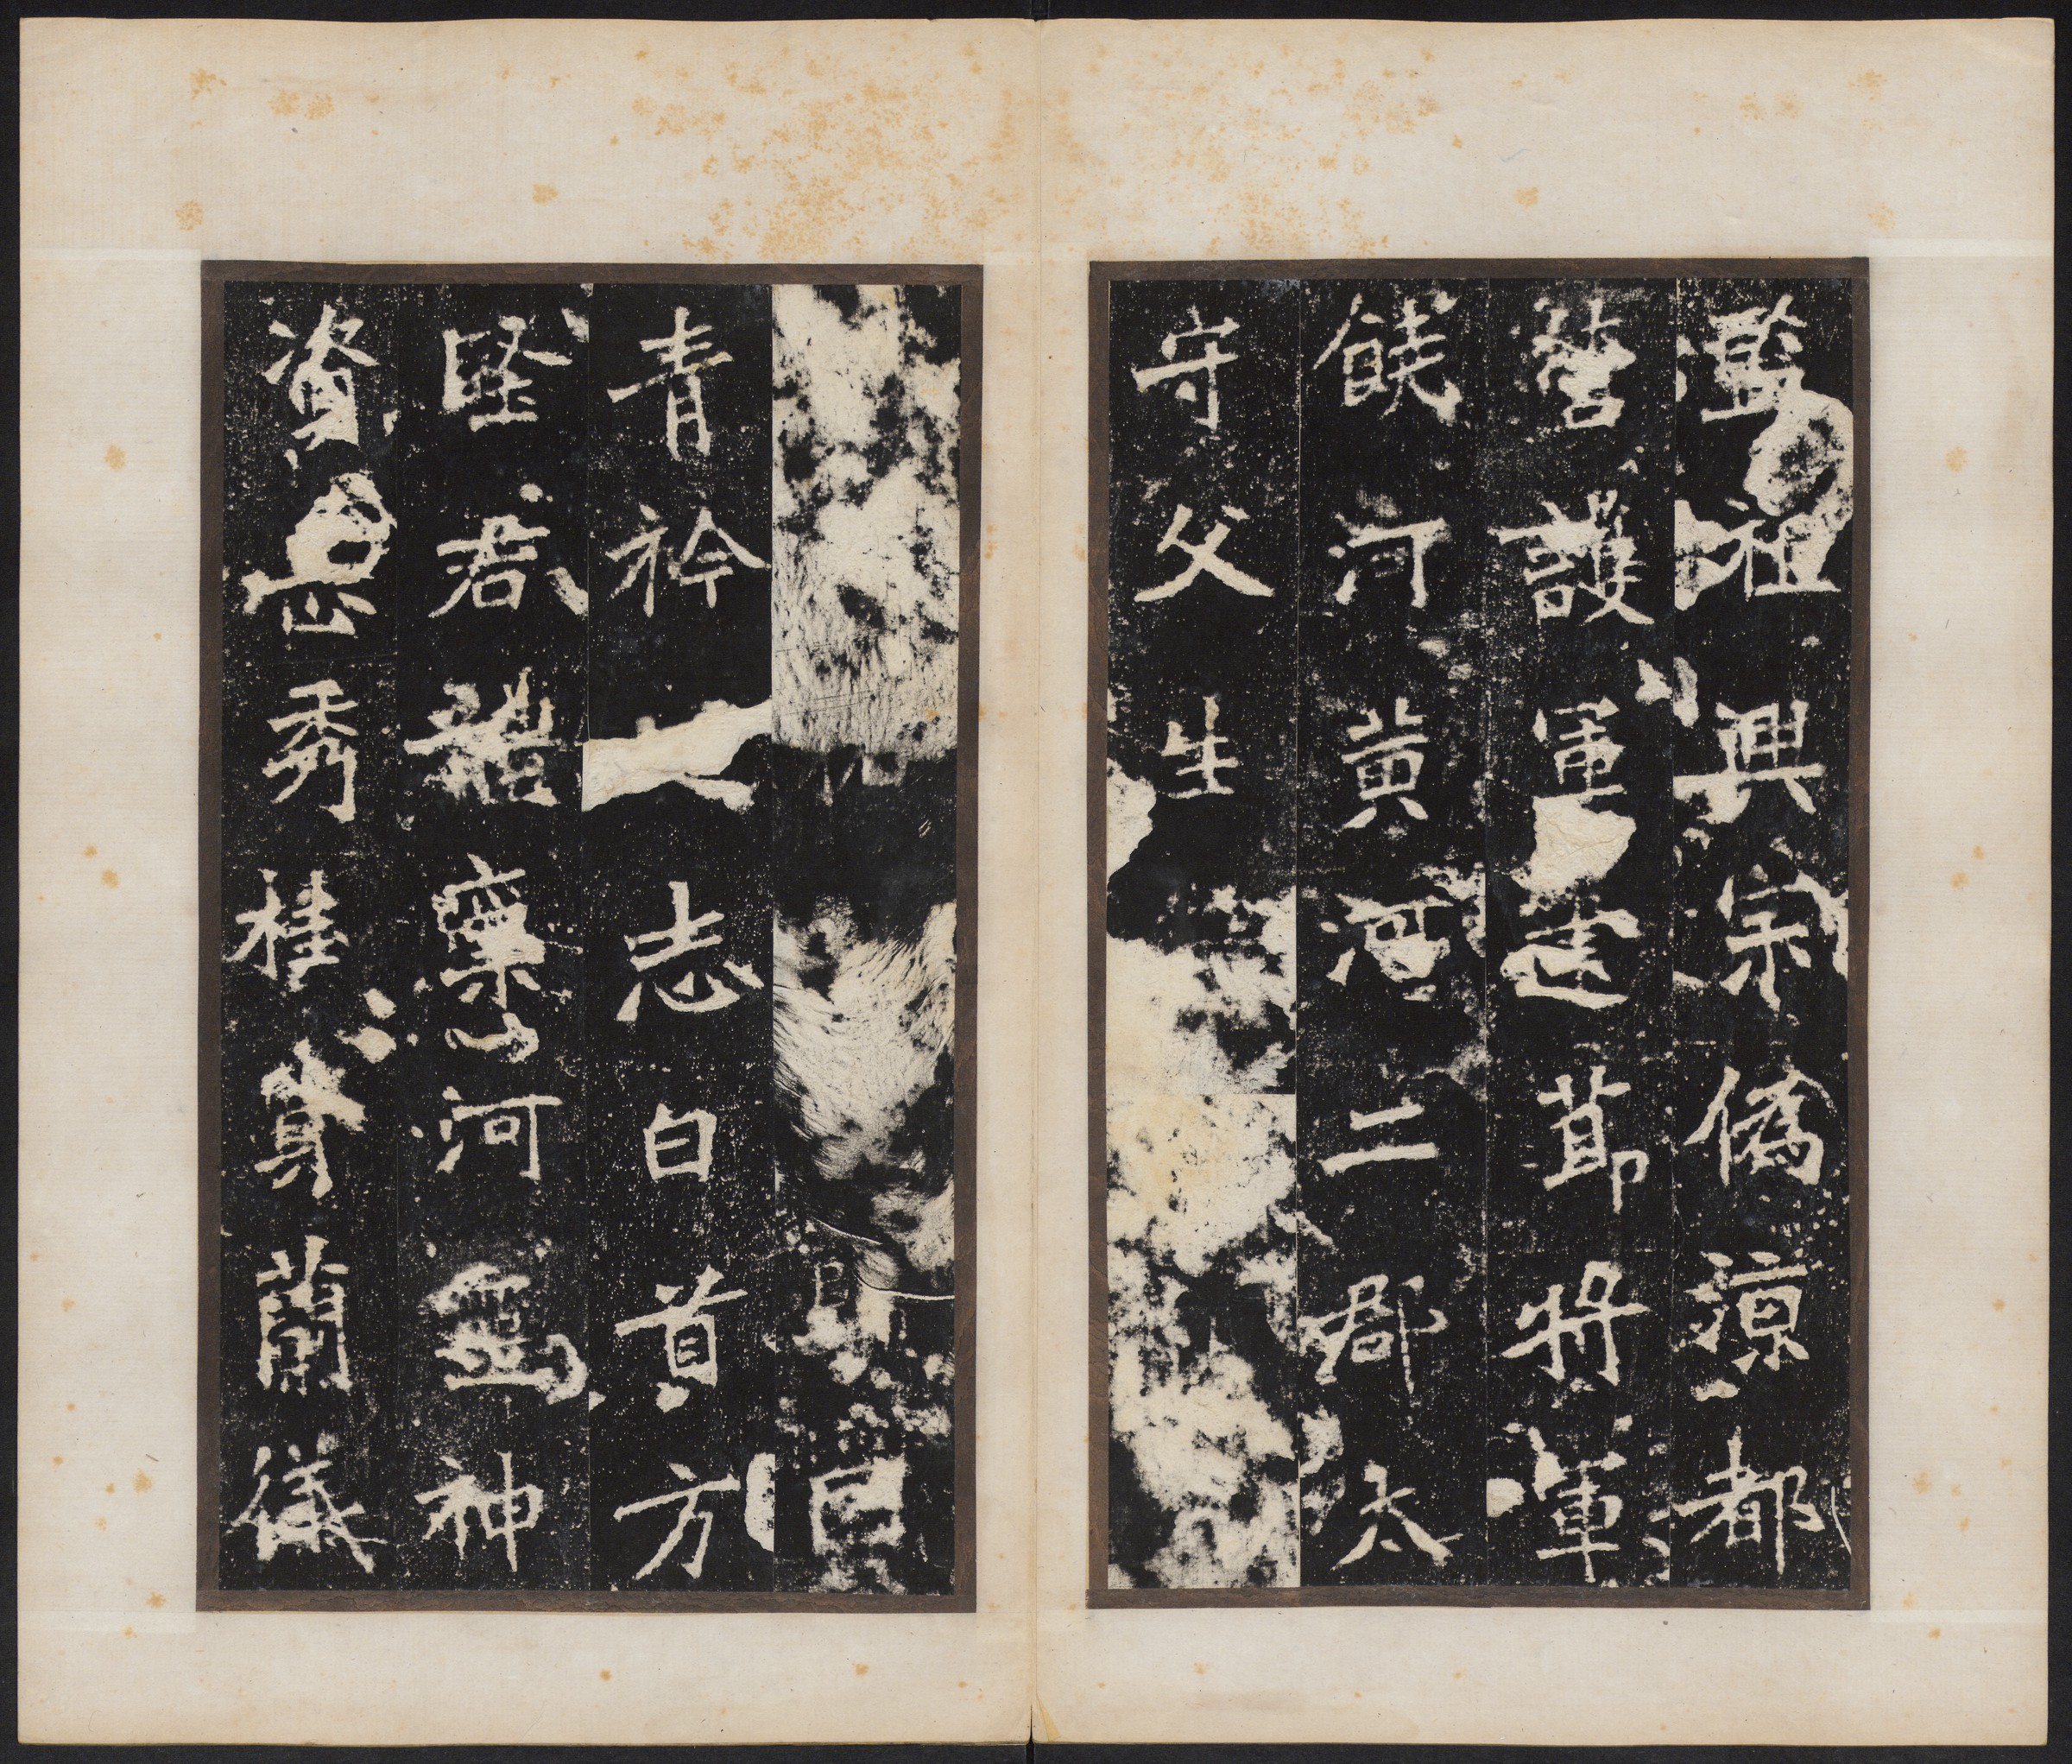 監祖興宗僞涼都
營護軍建節將軍
饒河黃河二郡太
守父生
青衿志白首方
堅君體稟河靈神
資岳秀桂質蘭儀